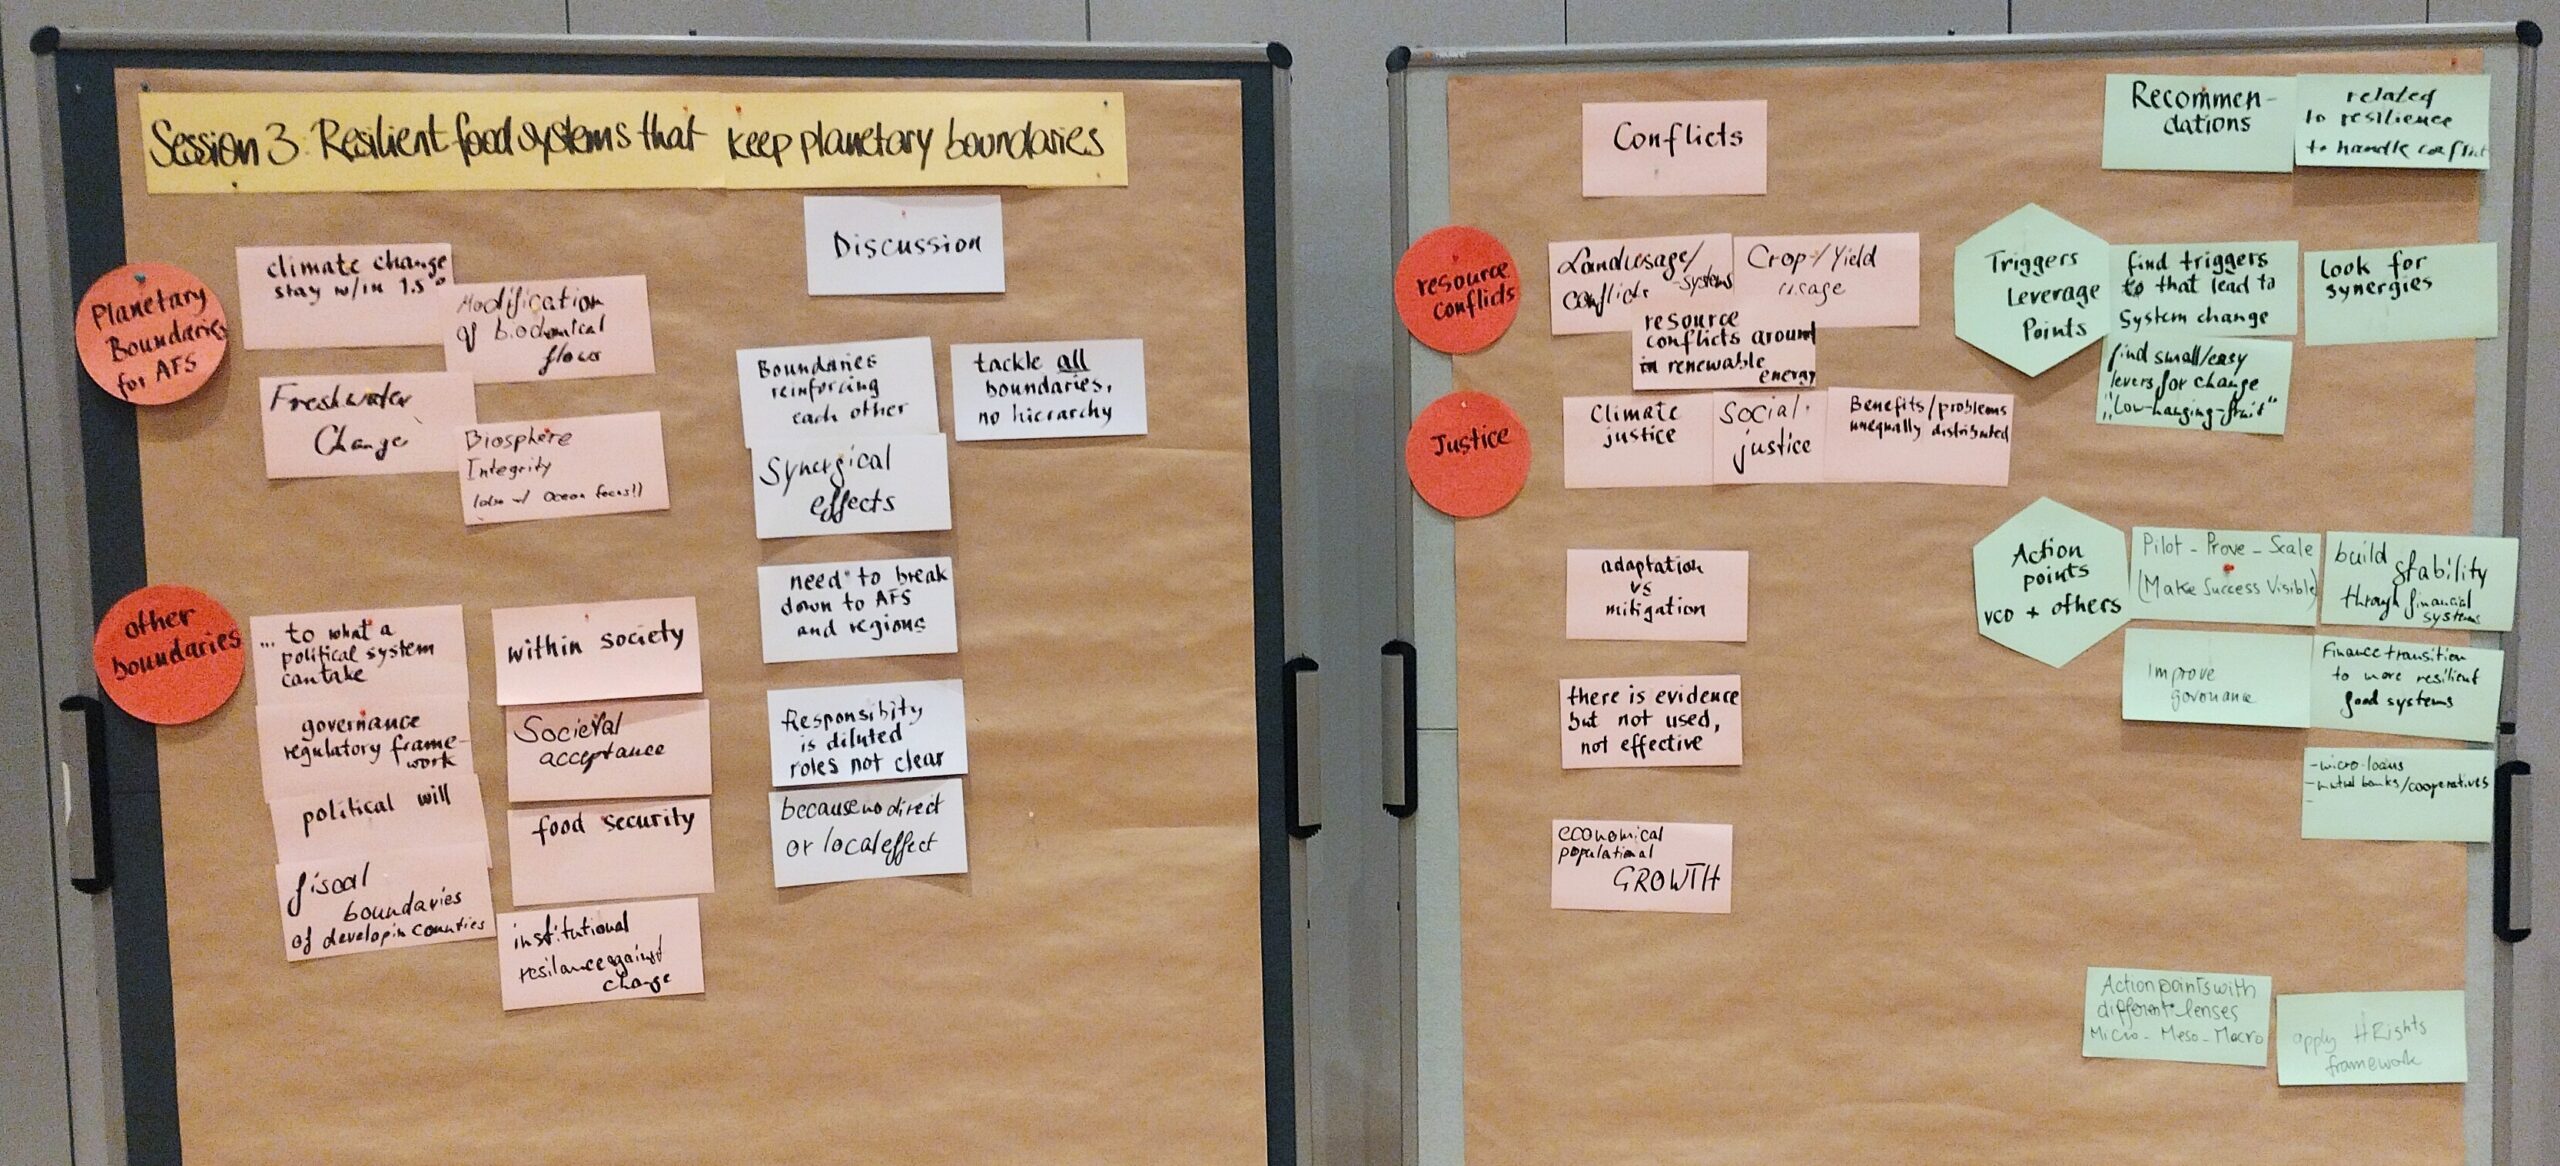 Session 3: Resilient food systems that keep planetary boundaries
Planetary
Boundaries
for AFS
climate change
stay w/in 1.5°
Modification
of biochemical
flows
Freshwater
Change
Biosphere
Integrity
(also w/ Ocean focus!!)
other
boundaries
... to what a
political system
can take
governance
regulatory frame-
work
political will
fiscal
boundaries
of developin counties
within society
Societal
acceptance
food security
institutional
resilance against
change
Discussion
Boundaries
reinforcing
each other
tackle all
boundaries,
no hierarchy
Synergical
effects
need to break
down to AFS
and regions
Responsibity
is diluted
roles not clear
because no direct
or local effect
Conflicts
resource
conflicts
Landusage/
conflicts -systems
Crop-/Yield
usage
resource
conflicts around
renewable
energy
Justice
Climate
justice
Social
justice
Benefits/problems
unequally distributed
adaptation
vs
mitigation
there is evidence
but not used,
not effective
economical
populational
GROWTH
Recommen-
dations
related
to resilience
to handle conflict
Triggers
Leverage
Points
find triggers
to that lead to
System change
Look for
synergies
find small/easy
levers for change
„Low-hanging-fruit"
Action
points
VCD + others
Pilot - Prove - Scale
(Make Success Visible)
build stability
through financial
systems
Improve
govonance
Finance transition
to more resilient
food systems
- micro-loans
- mutual banks/cooperatives
-
Action points with
different lenses
Micro - Meso - Macro
apply HRights
framework